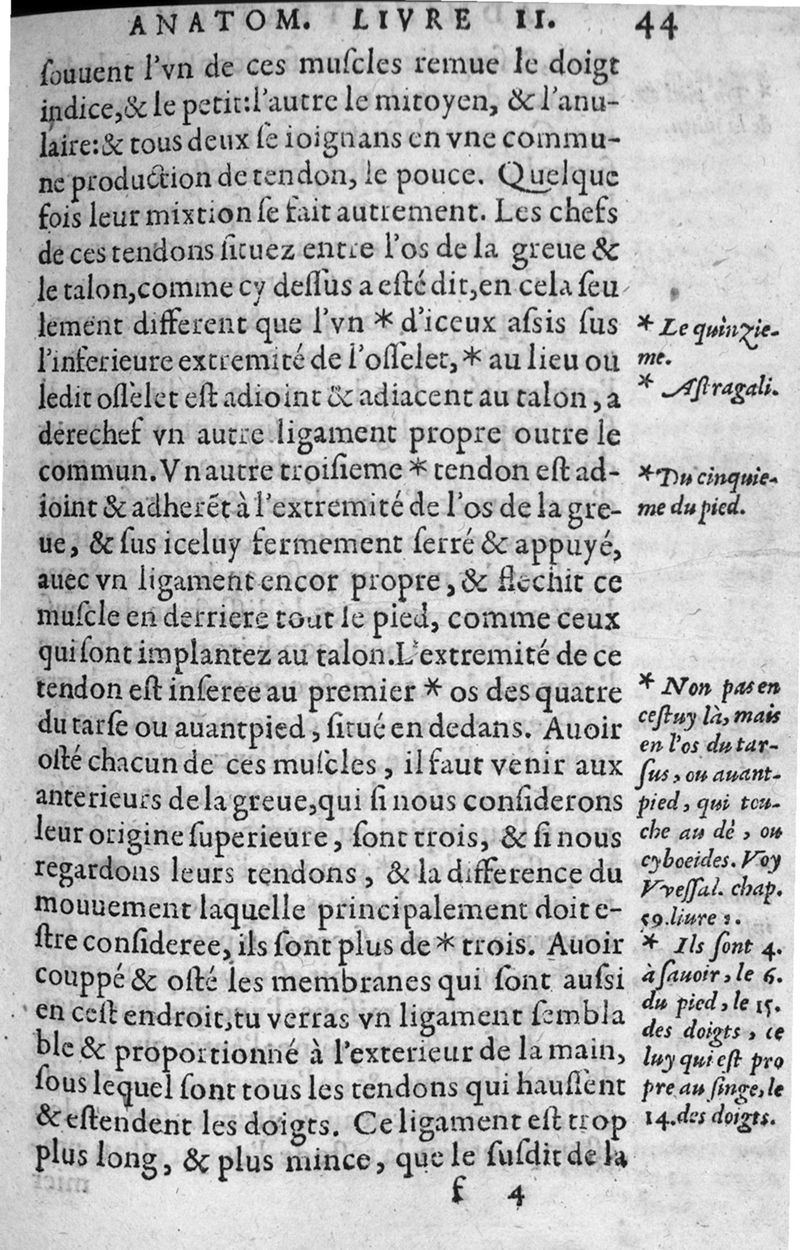 ANATOM. LIVRE II. 44
ſouuent l'vn de ces muſcles remue le doigt
indice,& le petit:l'autre le mitoyen, & l'anu-
laire:& tous deux ſe ioignans en vne commu-
ne production de tendon, le pouce. Quelque
fois leur mixtion ſe fait autrement. Les chefs
de ces tendons ſituez entre l'os de la greue &
le talon,comme cy deſſus a eſté dit,en cela ſeu
lement different que l'vn * d'iceux aſsis ſus
l'inferieure extremité de l'oſſelet,* au lieu ou
ledit oſſelet eſt adioint & adiacent au talon, a
derechef vn autre ligament propre outre le
commun. Vn autre troiſieme * tendon eſt ad-
ioint & adherẽt à l'extremité de l'os de la gre-
ue, & ſus iceluy fermement ſerré & appuyé,
auec vn ligament encor propre, & flechit ce
muſcle en derriere tout le pied, comme ceux
qui ſont implantez au talon. L'extremité de ce
tendon eſt inſeree au premier * os des quatre
du tarſe ou auantpied, ſitué en dedans. Auoir
oſté chacun de ces muſcles, il faut venir aux
anterieurs de la greue,qui ſi nous conſiderons
leur origine ſuperieure, ſont trois, & ſi nous
regardons leurs tendons, & la difference du
mouuement laquelle principalement doit e-
ſtre conſideree, ils ſont plus de * trois. Auoir
couppé & oſté les membranes qui ſont auſsi
en ceſt endroit,tu verras vn ligament ſembla
ble & proportionné à l'exterieur de la main,
ſous lequel ſont tous les tendons qui hauſſent
& eſtendent les doigts. Ce ligament eſt trop
plus long, & plus mince, que le ſuſdit de la
f 4
* Le quinzie-
me.
* Aſtragali.
* Du cinquie-
me du pied.
* Non pas en
ceſtuy là, mais
en l'os du tar-
ſus, ou auant-
pied, qui tou-
che au dé, ou
cyboeides. Voy
Vveſſal. chap.
59.liure 2.
* Ils ſont 4.
à ſauoir, le 6.
du pied, le 15.
des doigts, ce
luy qui eſt pro
pre au ſinge, le
14.des doigts.